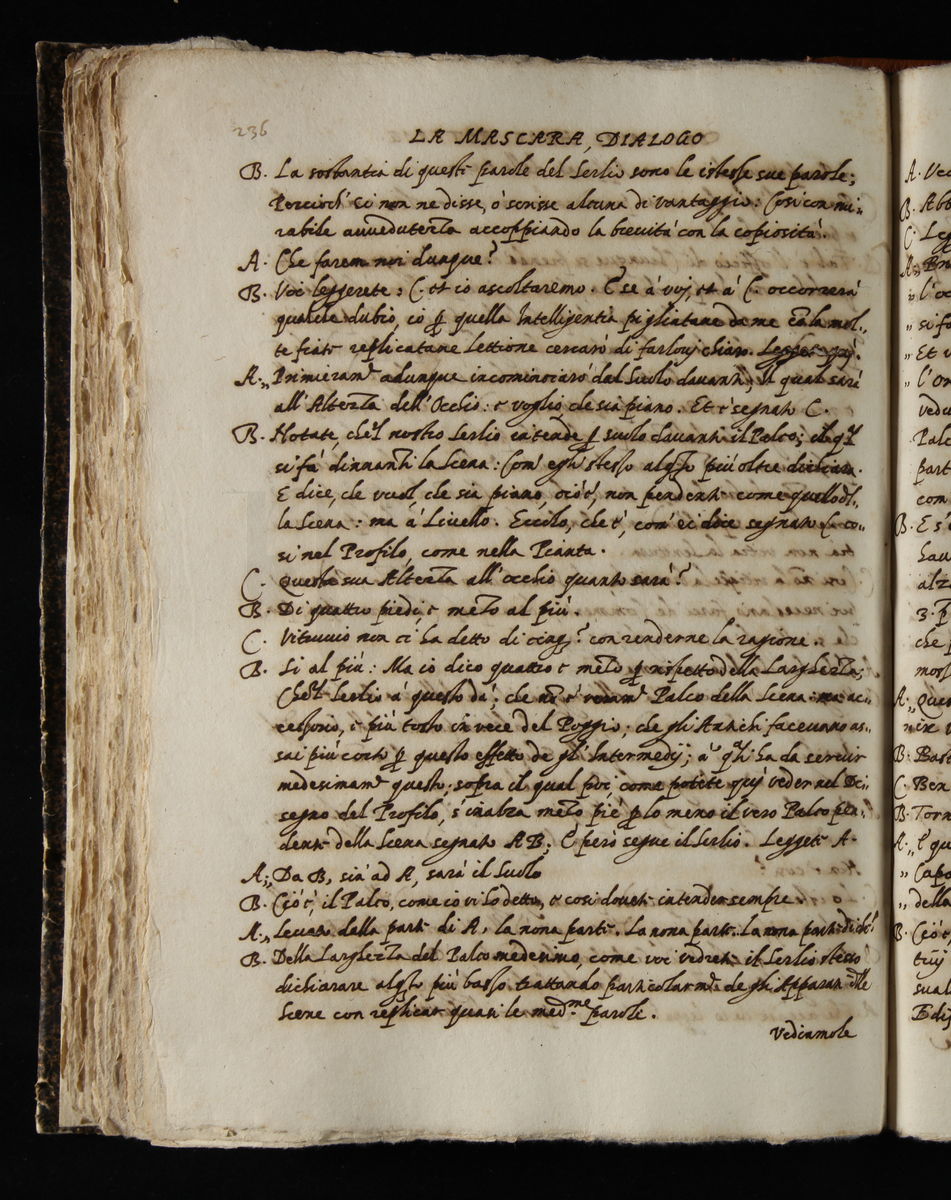 236
LA MASCARA, DIALOGO
B. La sostantia di queste parole del Serlio sono le istesse sue parole;
Percioch' ei non ne disse, ò scrisse alcuna di vantaggio: Così con mi-
rabile avvedutezza accoppiando la brevità con la copiosità.
A. Che farem noi dunque?
B. Voi leggerete: C. et io ascoltaremo. E se à voj, et à C. occorrerà
qualche dubio, io ꝑ quella Intelligentia pigliatane da me cõ la mol-
te fiate replicatane Lettione cercarò di farlovj chiaro. Legget quì.
A.„ Primieramᵗᵉ adunque incominciarò dal Suolo davanti, il qual sarà
all'Altezza dell'Occhio: e voglio che sia piano. Et è segnato C.
B. Notate, che'l nostro Serlio intende ꝑ suolo davanti il Palco; il q̃l
si fà dinnanti la Scena: Com' egli stesso alq̃to più oltre dichiara.
E dice, che vuol, che sia piano, cioè, non pendente come quello dl-
la Scena: ma à Livello. Eccilo, che è, com' ei dice segnato C. co-
si nel Profilo, come nella Pianta.
C. Questa sua Altezza all'occhio quanto sarà?
B. Di quattro piedi, e mezo al più.
C. Vitruvio non ci ha detto di cinq? con renderne la ragione.
B. Si al più: Ma io dico quattro e mezo ꝑ rispetto della Larghezza,
Che'l Serlio à questo dà; che nõ è veramᵗᵉ Palco della Scena: ma ac-
cessorio, e più tosto in vece del Poggio; che gli Antichi facevano as-
sai più corto ꝑ questo effetto de gl'Intermedij; à q̃li ha da servir
medesimamᵗᵉ questo: sopra il qual poi, come potete quì veder nel Di-
segno del Profilo, s'inalza mezo piè ꝑ lo meno il vero Palco pen-
dente della Scena segnato AB; E però segue il Serlio. Legget A.
A.„ Da B, sià ad A, sarà il Suolo
B. Cioè, il Palco, come io vi lo detto, e così dovete intender sempre.
A.„ Levato dalla parte di A, la nona parte. La nona parte. La nona parte di che?
B. Della Larghezza del Palco medesimo, come voi vedrete il Serlio stesso
dichiarare alq̃to più basso trattando particolarmᵗᵉ de gli Apparati dlle
Scene con replicar quasi le medᵐᵉ parole.
Vediamole